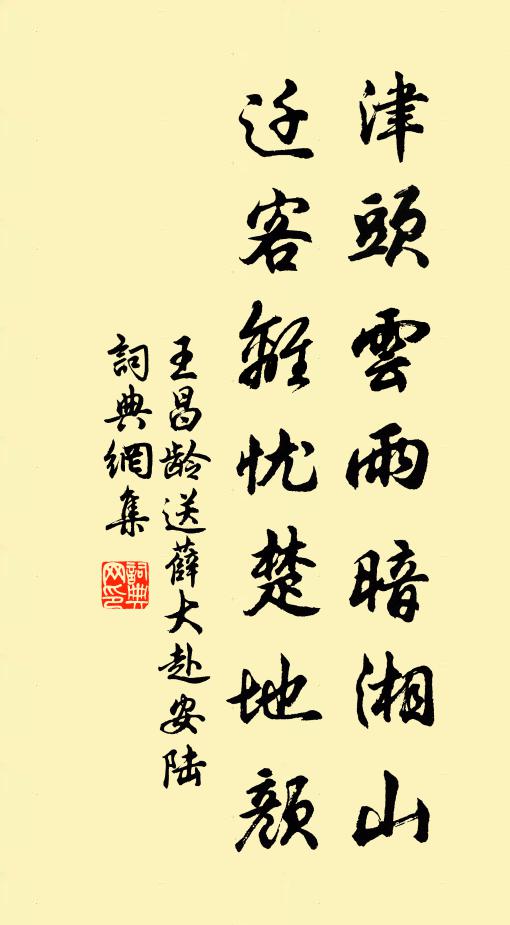 津頭雲雨暗湘山
迁客離忧楚地顏
王昌龄送薛大赴安陆
詞典網集
詞典
网印